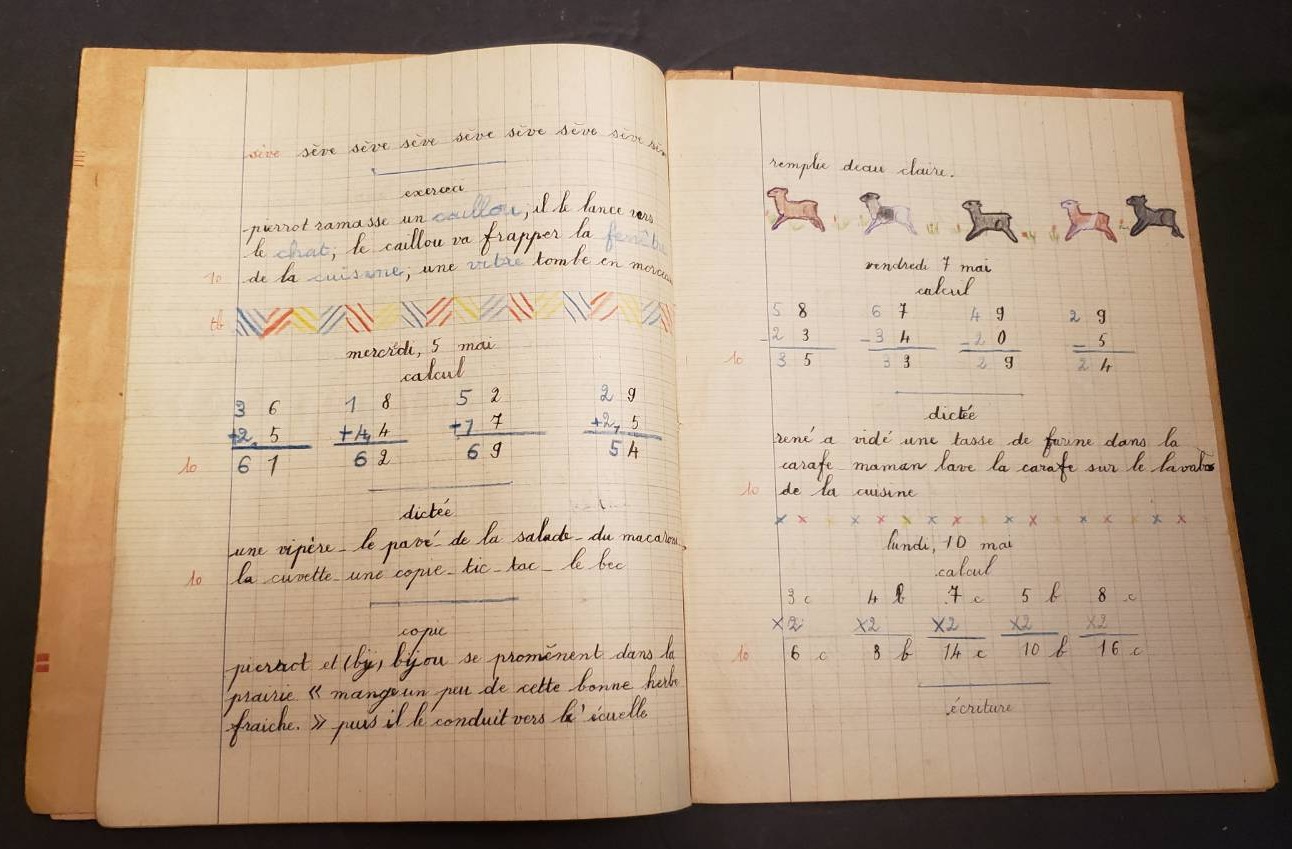 sève sève sève sève sève sève sève sève
exercci
pierrot ramasse un caillou, il le lance vers
le chat, le caillou va frapper la fenêtre
10 de la cuisine, une vitre tombe en morceau
tb
mercrdi, 5 mai
calcul
3 6 1 8 5 2 2 9
+2, 5 +4, 4 +1 7 +2, 5
10 6 1 6 2 6 9 5 4
dictée
une vipère - le pavé - de la salade - du macaroni
10 la cuvette - une copie - tic - tac - le bec
copie
pierrot et (bij) bijou se promènent dans la
prairie « mange un peu de cette bonne herbe
fraiche. » puis il le conduit vers l' écuelle
remplie deau claire.
vendredi 7 mai
calcul
5 8 6 7 4 9 2 9
-2 3 -3 4 -2 0 - 5
10 3 5 3 3 2 9 2 4
dictée
rené a vidé une tasse de farine dans la
carafe - maman lave la carafe sur le lavabo
10 de la cuisine
lundi, 10 mai
calcul
3 c 4 b 7 c 5 b 8 c
×2 ×2 ×2 ×2 ×2
10 6 c 8 b 14 c 10 b 16 c
écriture